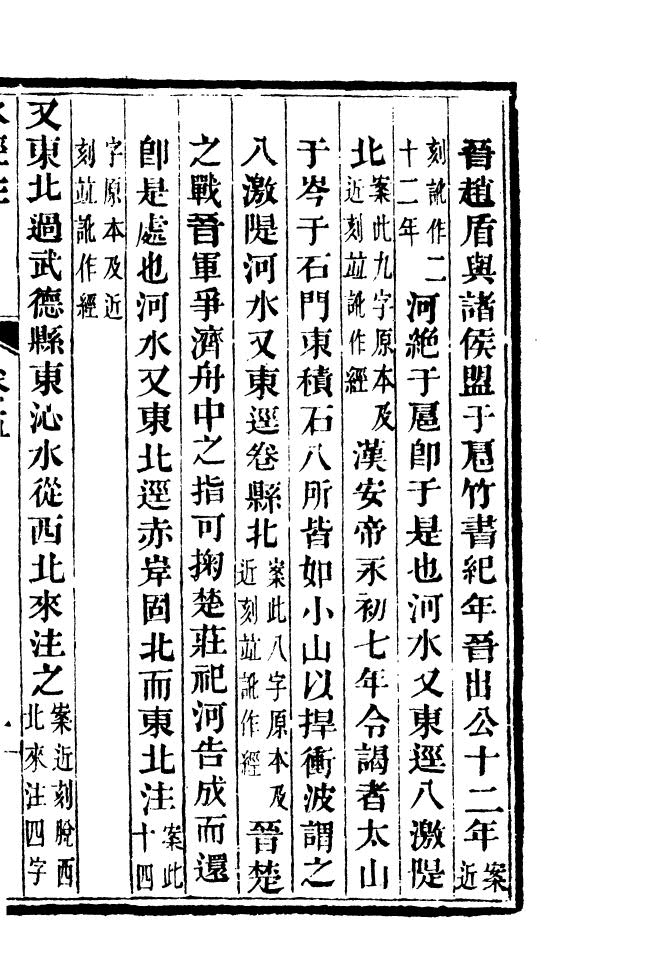 晉趙盾與諸侯盟于扈竹書紀年晉出公十二年案近
刻訛作二十二年河絶于扈卽于是也河水又東逕八激隄
北案此九字原本及近刻竝訛作經漢安帝永初七年令謁者太山
于岑于石門東積石八所皆如小山以捍衝波謂之
八激隄河水又東逕卷縣北案此八字原本及近刻竝訛作經晉楚
之戰晉軍爭濟舟中之指可掬楚莊祀河告成而還
卽是處也河水又東北逕赤岸固北而東北注案此十四
字原本及近刻竝訛作經
又東北過武德縣東沁水從西北來注之案近刻脫西北來注四字